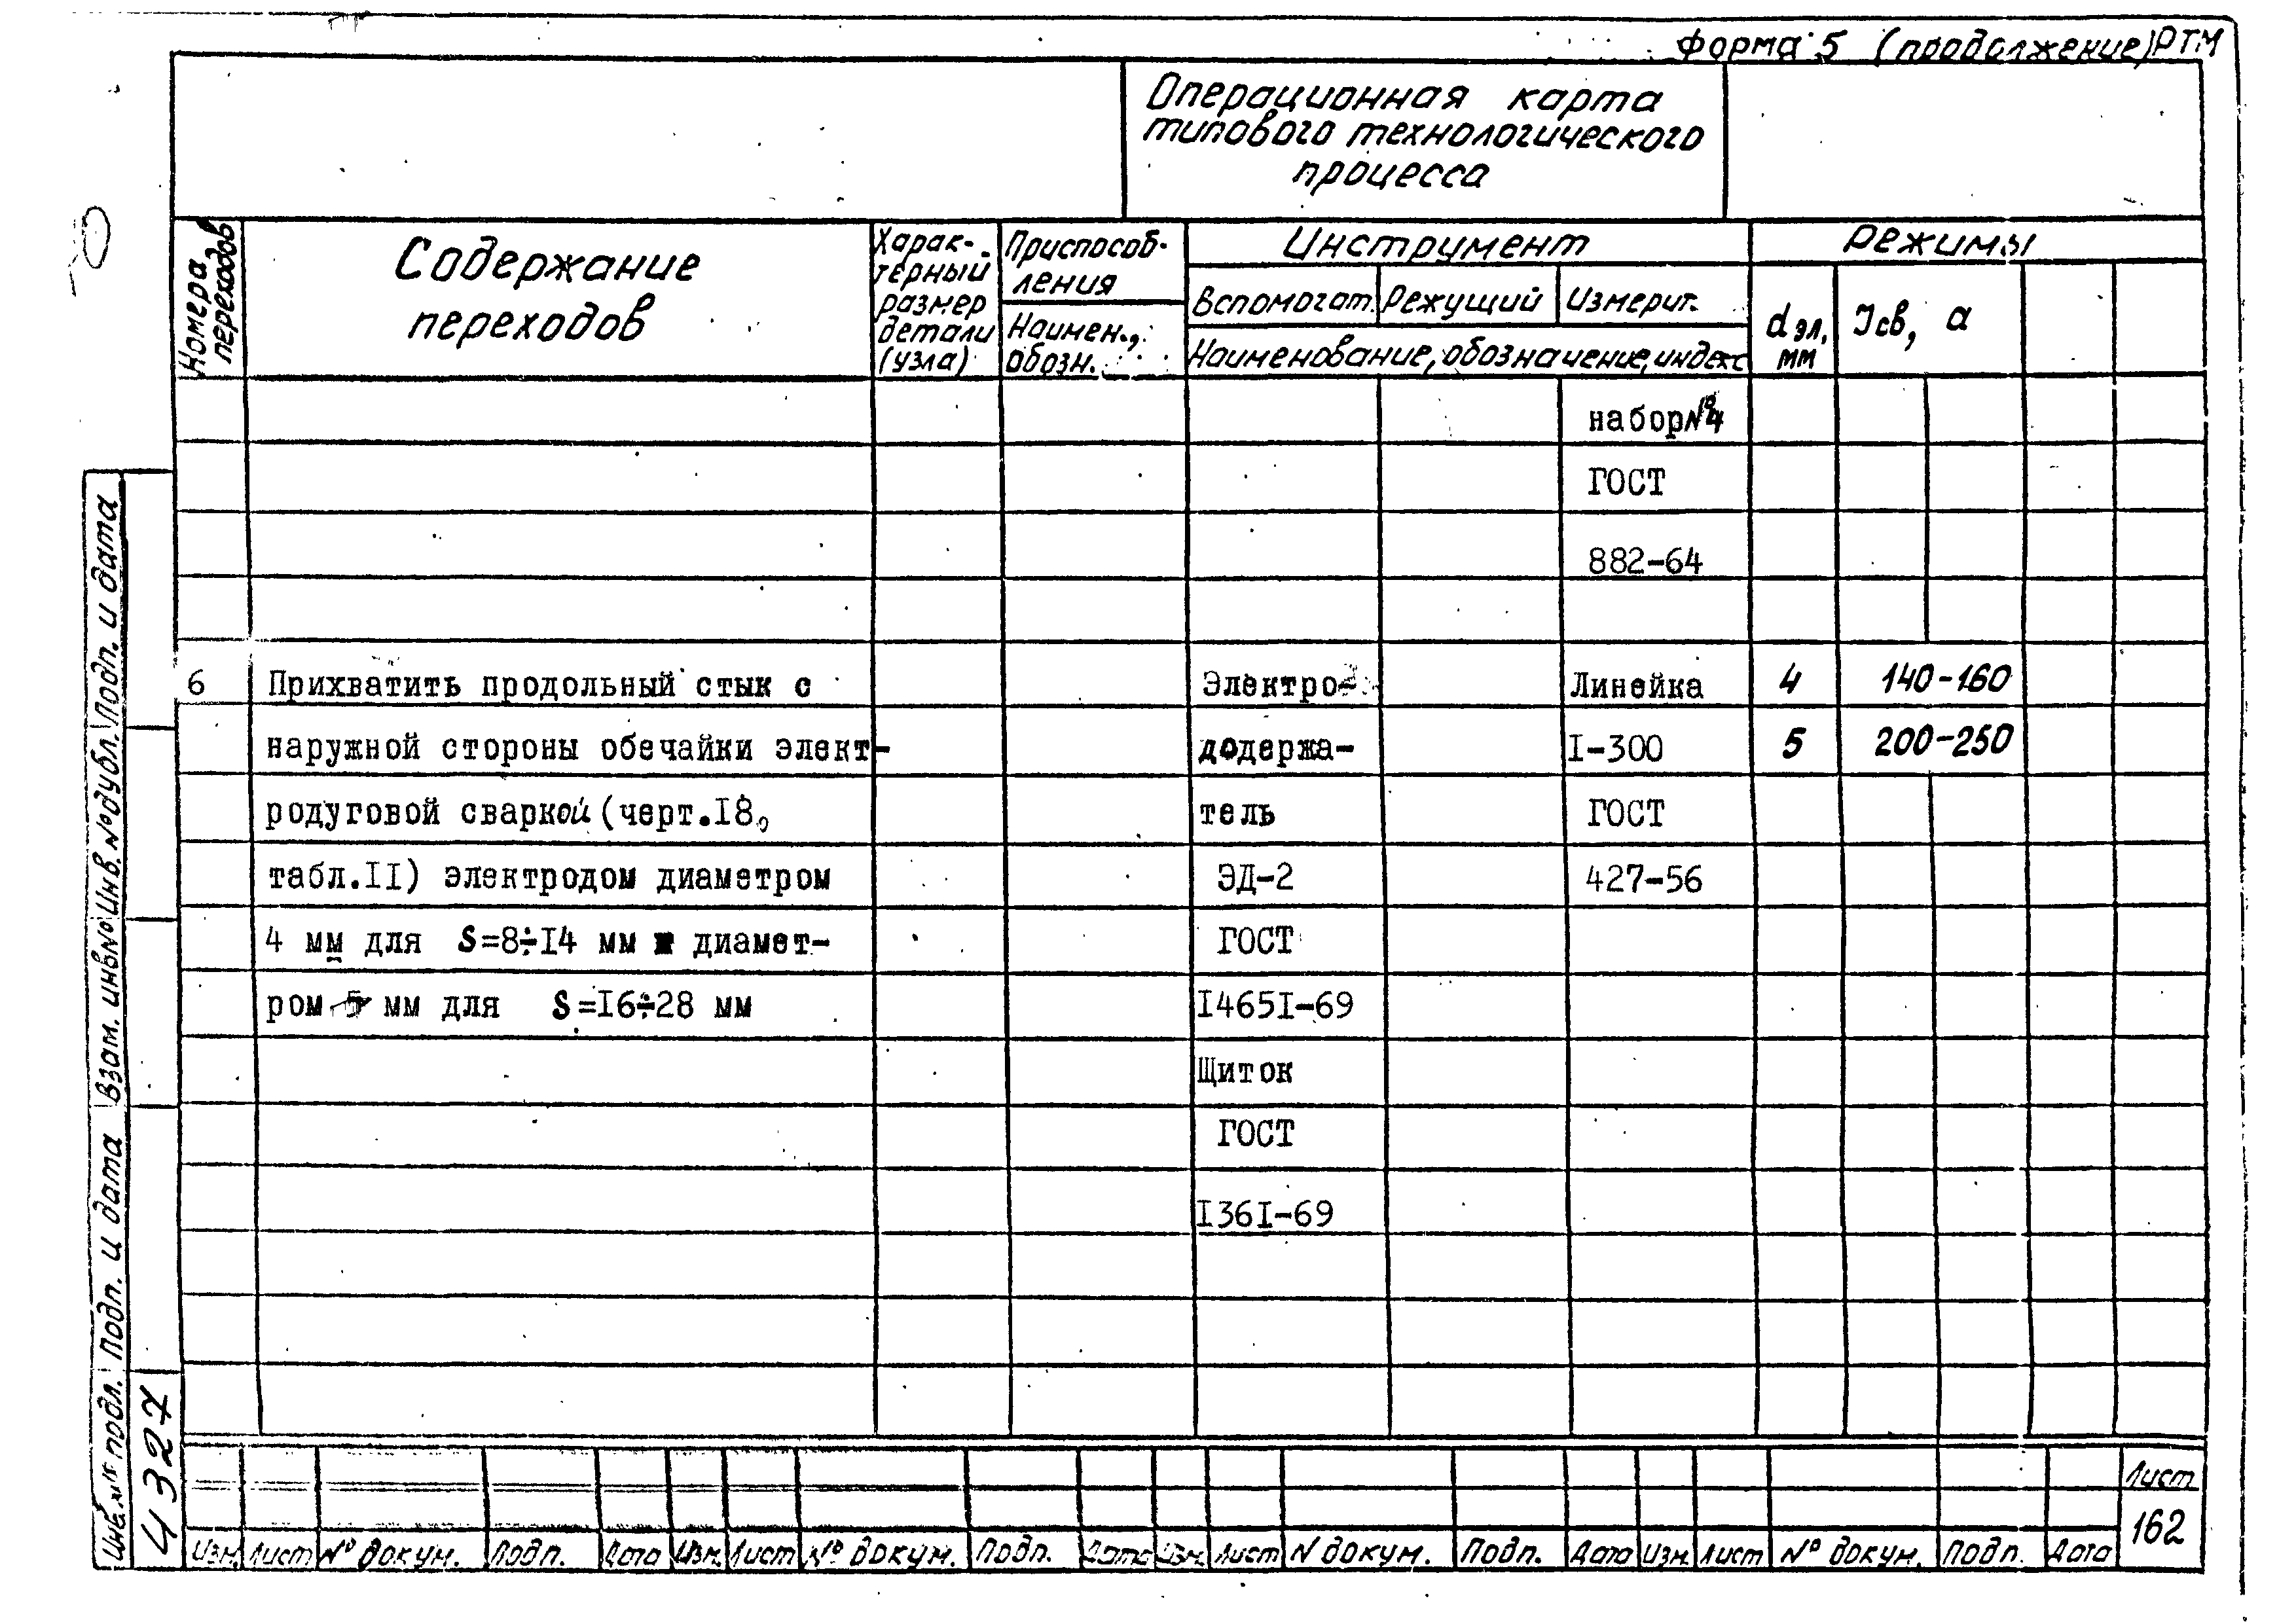 форма 5 (продолжение) РТМ
Операционная карта
типового технологического
процесса
Номера
переходов
Содержание
переходов
Харак-
терный
размер
детали
(узла)
Приспособ-
ления
Наимен.,
обозн.
Инструмент
Вспомогат. Режущий Измерит.
Наименование, обозначение, индекс
Режимы
dэл, Iсв, а
мм
набор№4
ГОСТ
882-64
6 Прихватить продольный стык с Электро- Линейка 4 140-160
наружной стороны обечайки элект- додержа- I-300 5 200-250
родуговой сваркой (черт.I8, тель ГОСТ
табл.II) электродом диаметром ЭД-2 427-56
4 мм для S=8÷I4 мм и диамет- ГОСТ
ром 5 мм для S=I6÷28 мм I465I-69
Щиток
ГОСТ
I36I-69
Подп. и дата
Инв.№дубл.
Взам. инв№
Подп. и дата
Инв.№ подл.
4327
Лист
162
Изм. Лист № докум. Подп. Дата Изм. Лист № докум. Подп. Дата Изм. Лист N докум. Подп. Дата Изм. Лист № докум. Подп. Дата